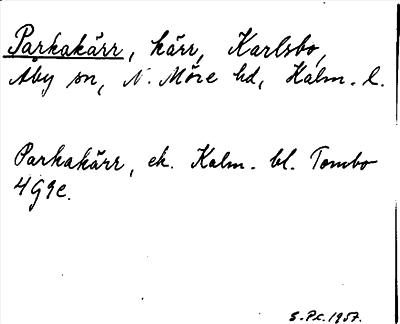 Parkakärr, kärr, Karlsbo,
Åby sn, N. Möre hd, Kalm. l.
Parkakärr, ek. Kalm. bl. Tombo
4G9e.
S.Pc. 1957.